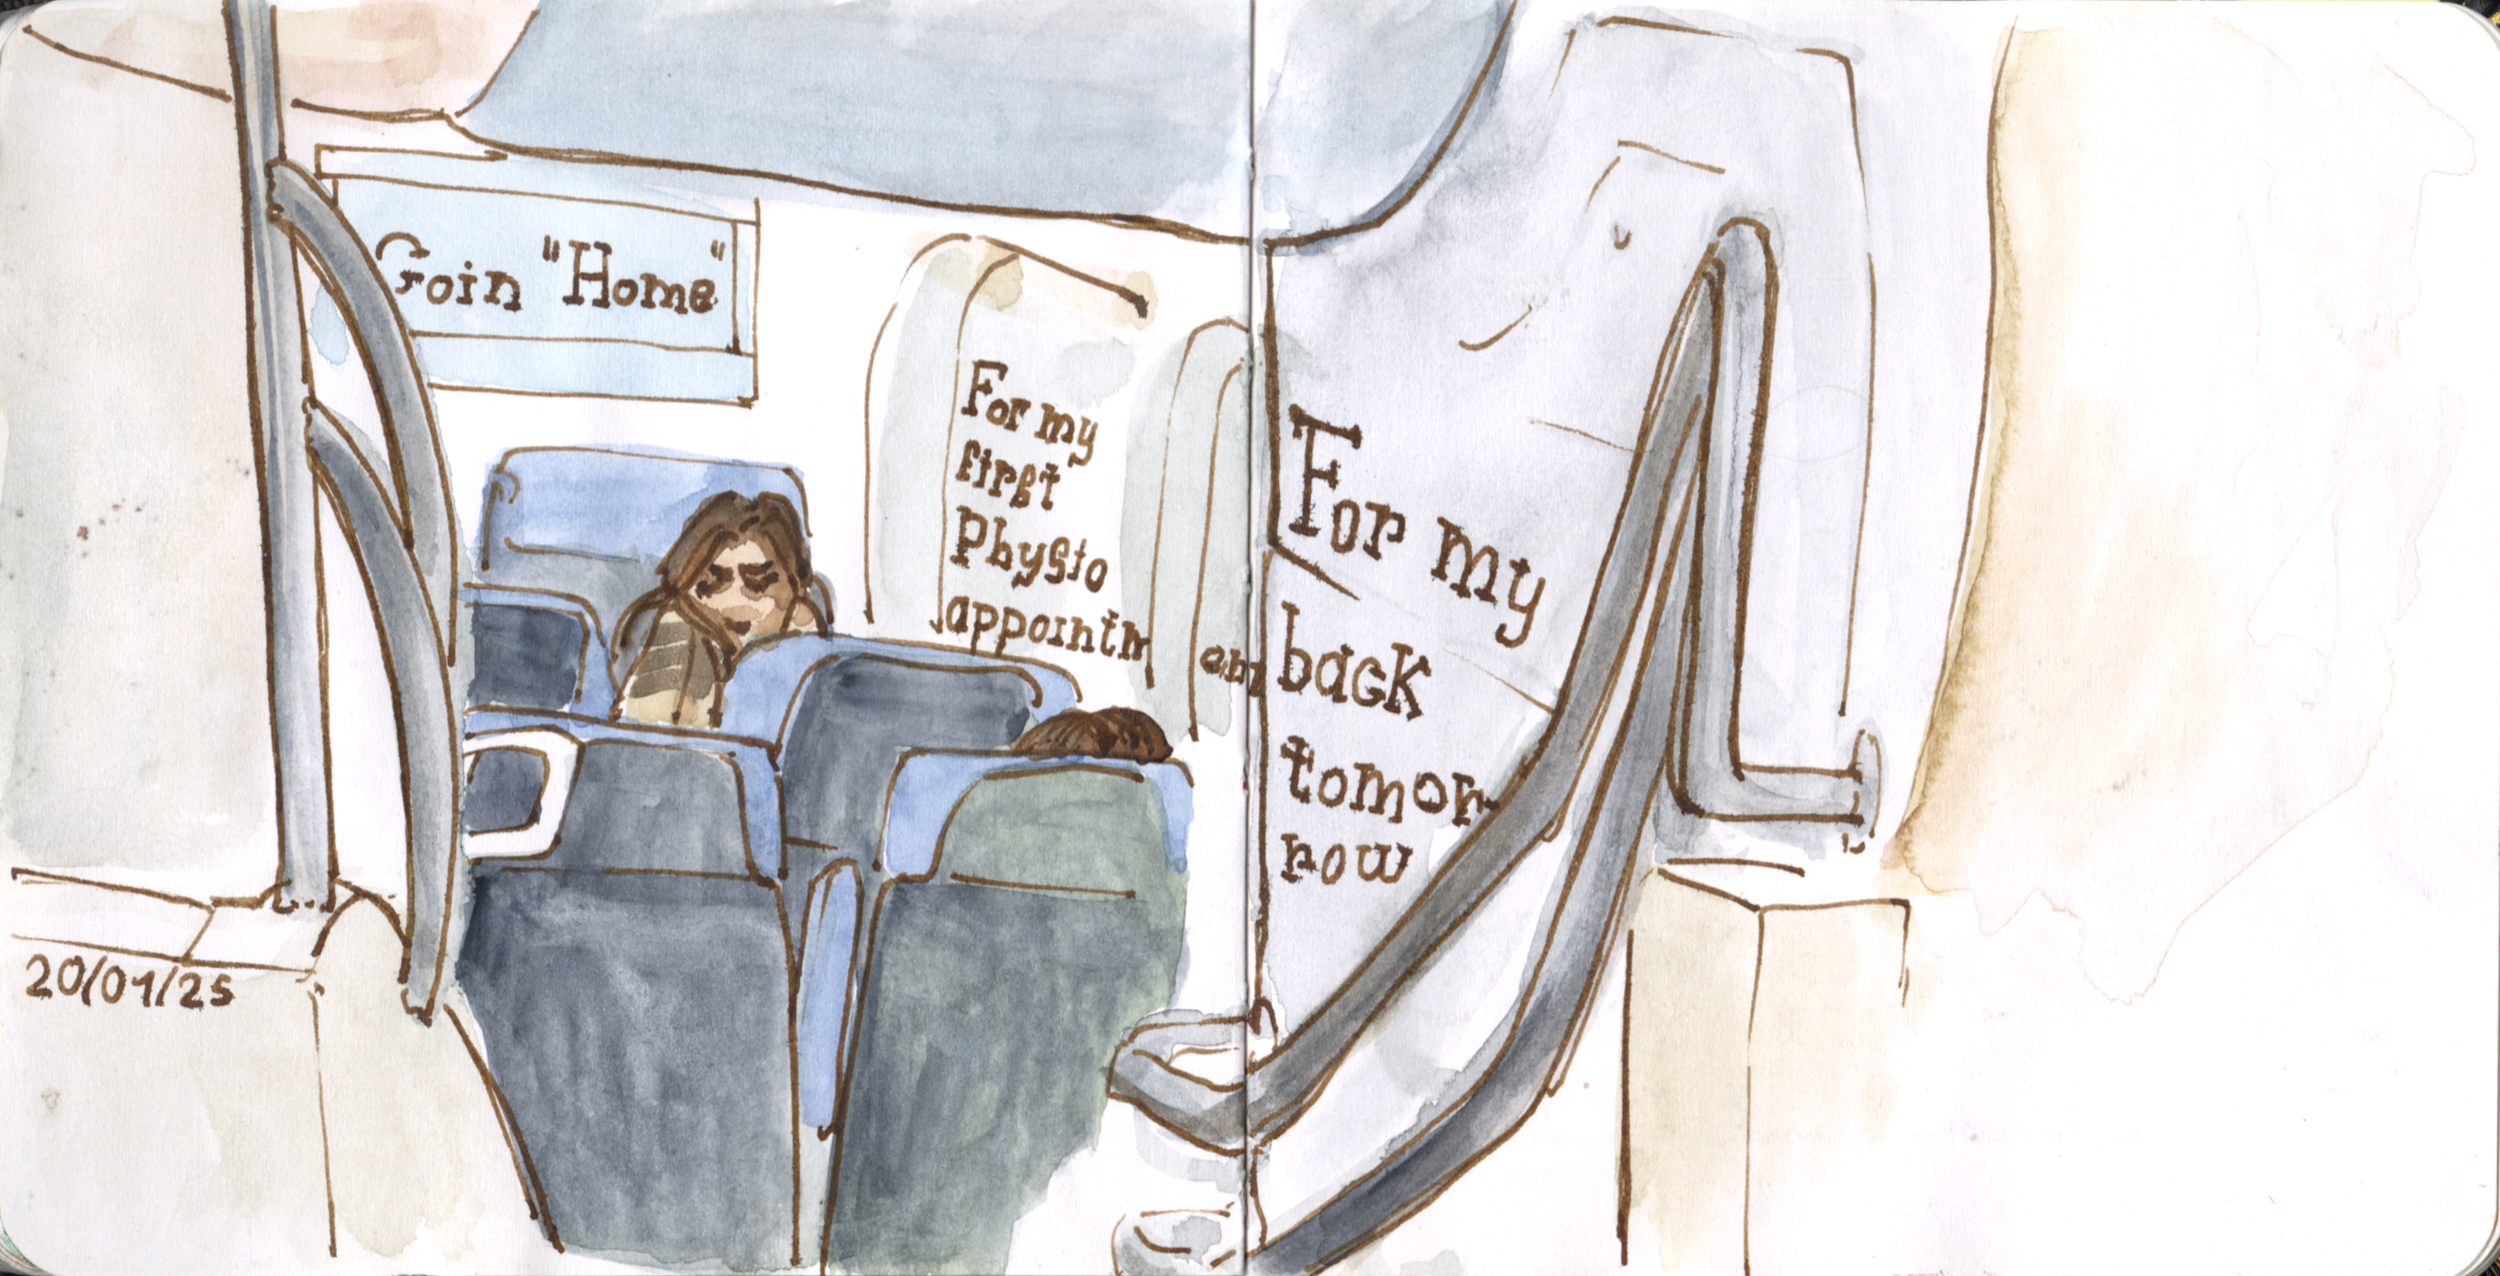 Goin "Home"
For my
first
Physio
appointment
For my
back
tomor-
row
20/01/25